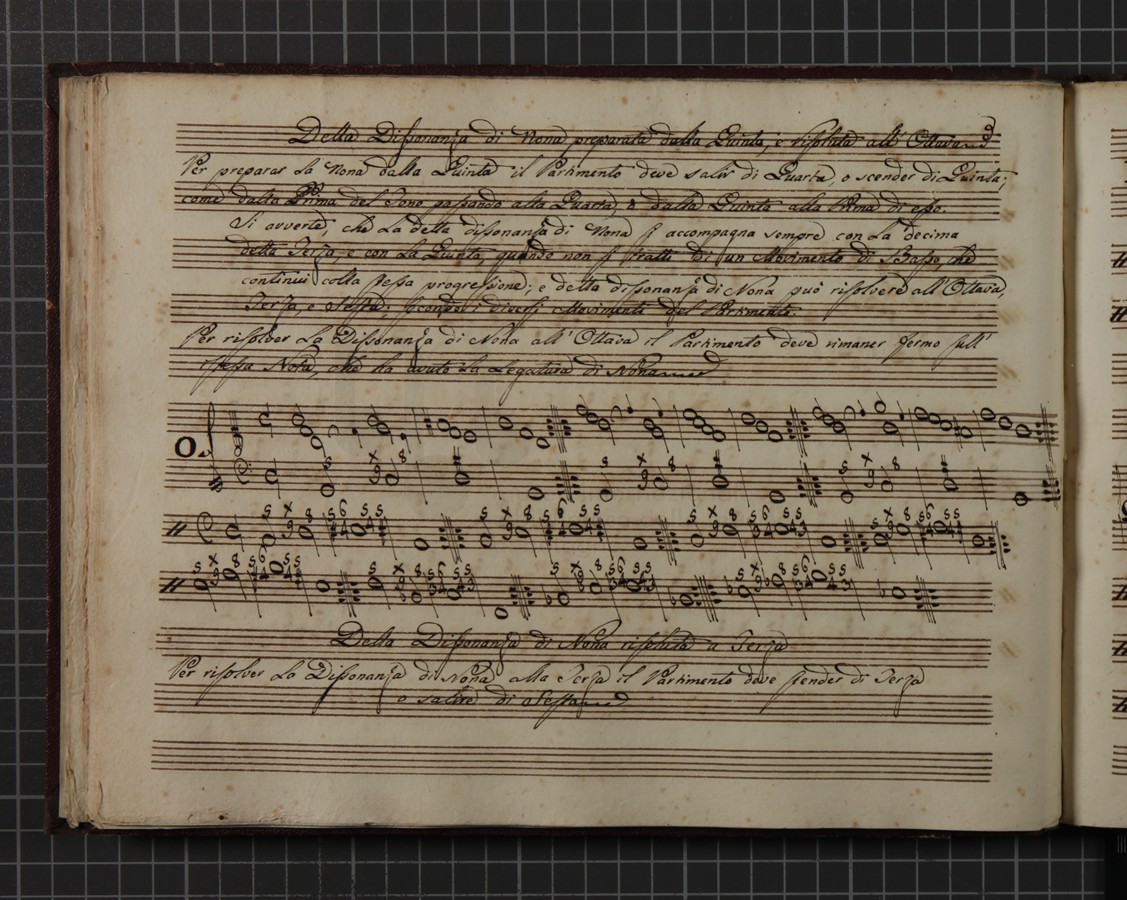 Della Dissonanza di Nona preparata dalla Quinta, e risoluta all' Ottava 3
Per preparar La Nona dalla Quinta il Partimento deve salir di Quarta, o scender di Quinta;
come dalla Prima del Tono passando alla Quarta, o dalla Quinta alla Prima di esso.
Si avverte, che La detta dissonanza di Nona si accompagna sempre con La decima
detta Terza, e con La Quinta, quando non si tratti di un Movimento di Basso, che
continui colla stessa progressione; e detta dissonanza di Nona può risolvere all' Ottava,
Terza, e Sesta, secondo i diversi Movimenti del Partimento.
Per risolver La Dissonanza di Nona all' Ottava il Partimento deve rimaner fermo sull'
istessa Nota, che ha avuto La Legatura di Nona
Della Dissonanza di Nona risoluta a Terza
Per risolver La Dissonanza di Nona alla Terza il Partimento deve scender di Terza
o salire di Sesta